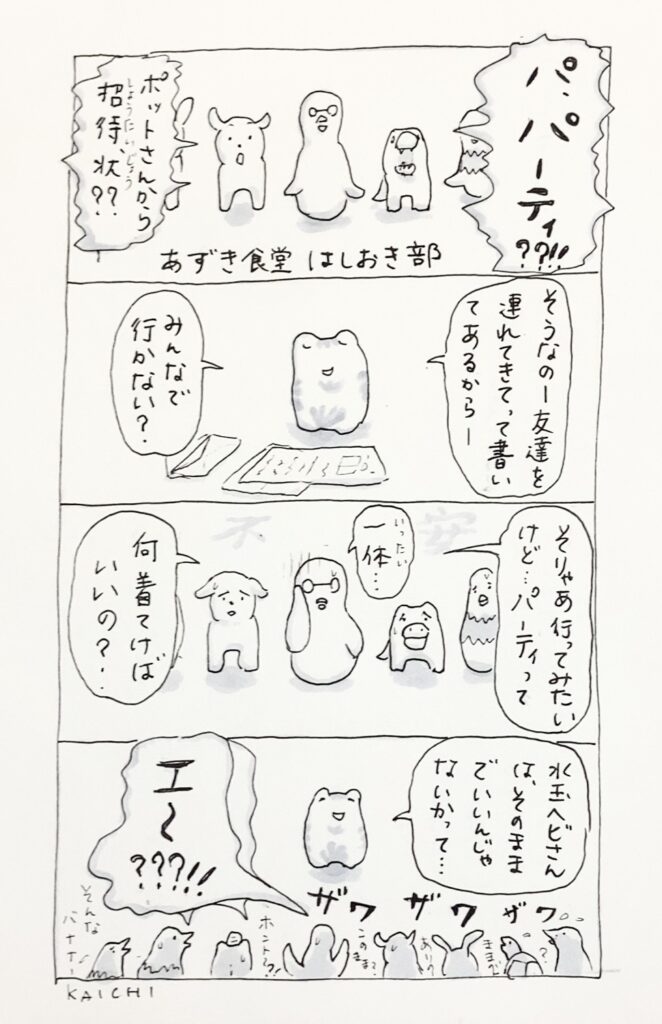 パ、
パーティ
??!!
ポットさんから
招待、状??
しょうたいじょう
あずき食堂 はしおき部
そうなのー友達を
連れてきてって書い
てあるからー
みんなで
行かない?
そりゃあ行ってみたい
けど…パーティって
一体…
いったい
何着てけば
いいの?
不安
水玉ヘビさん
は、そのまま
でいいんじゃ
ないかって…
エ〜
???!!
ザワ ザワ ザワ
?
ままで
ありの
このまま?
ホント?
そんな
KAICHI